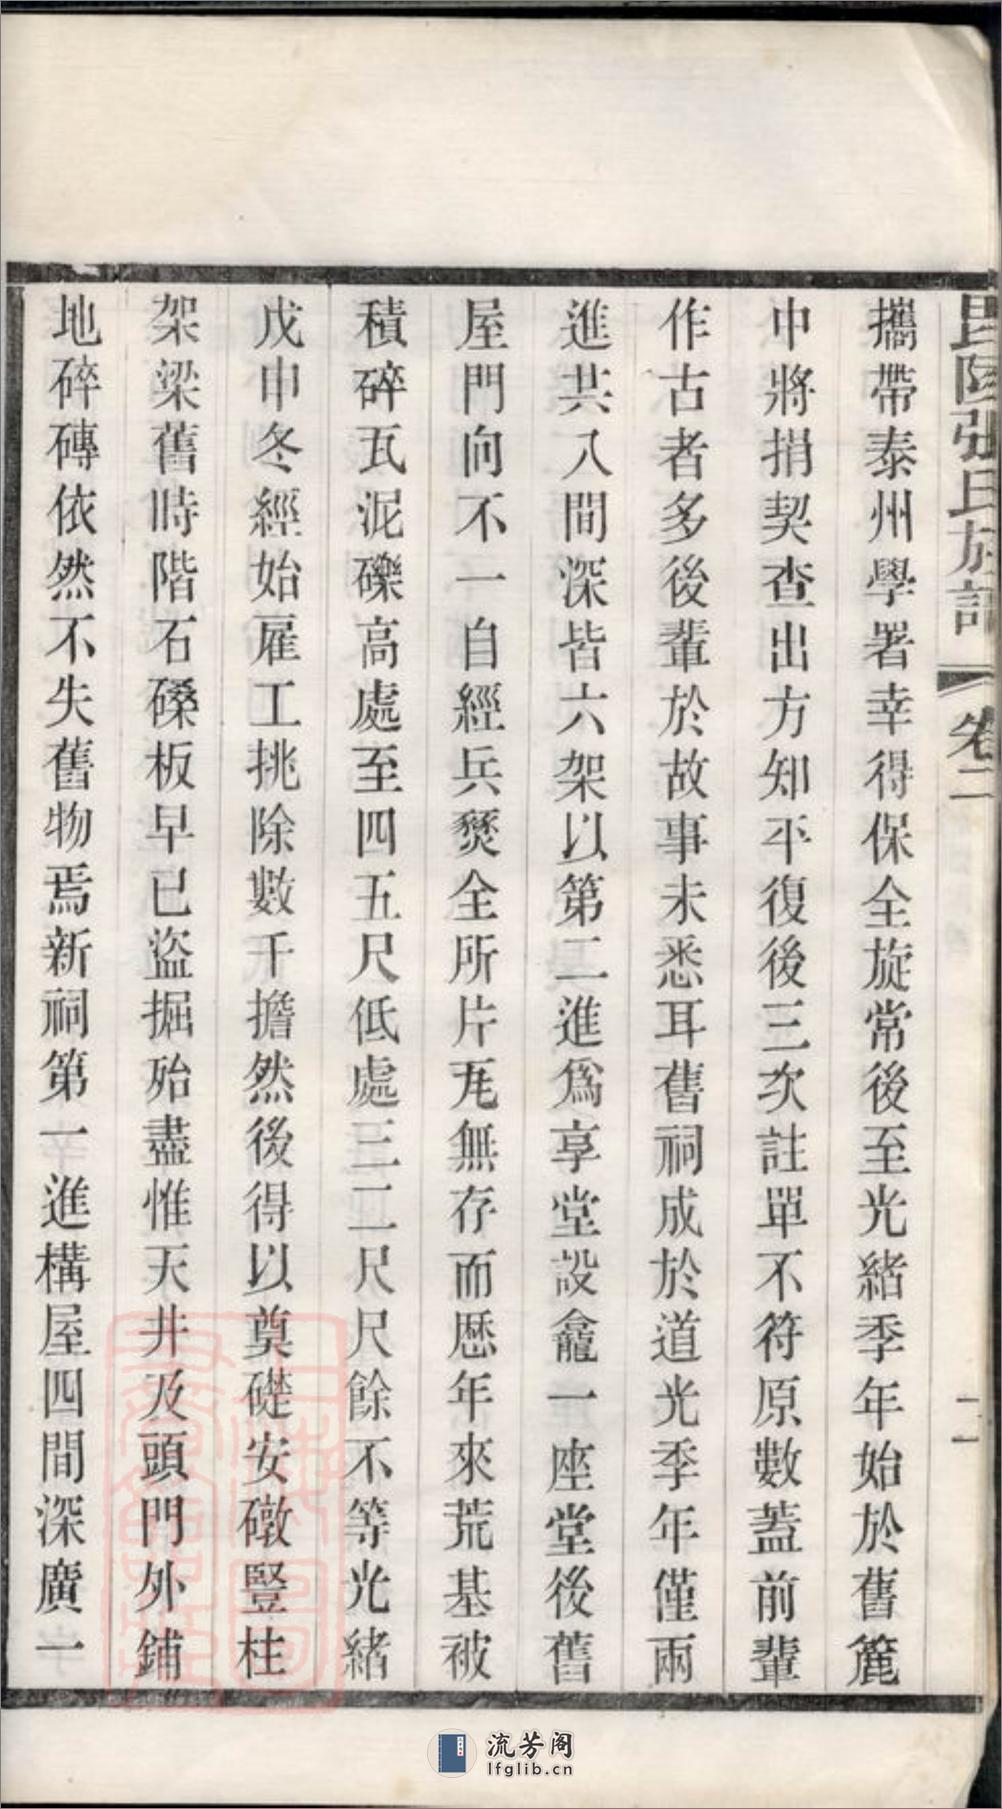 毘陵張氏族譜
卷二
二一
攜帶泰州學署幸得保全旋常後至光緒季年始於舊簏
中將捐契查出方知平復後三次註單不符原數蓋前輩
作古者多後輩於故事未悉耳舊祠成於道光季年僅兩
進共八間深皆六架以第二進爲享堂設龕一座堂後舊
屋門向不一自經兵燹全所片瓦無存而歷年來荒基被
積碎瓦泥礫高處至四五尺低處三二尺尺餘不等光緒
戊申冬經始雇工挑除數千擔然後得以奠礎安礅豎柱
架梁舊時階石磉板早已盜掘殆盡惟天井及頭門外鋪
地碎磚依然不失舊物焉新祠第一進構屋四間深廣一
流芳阁
lfglib.cn